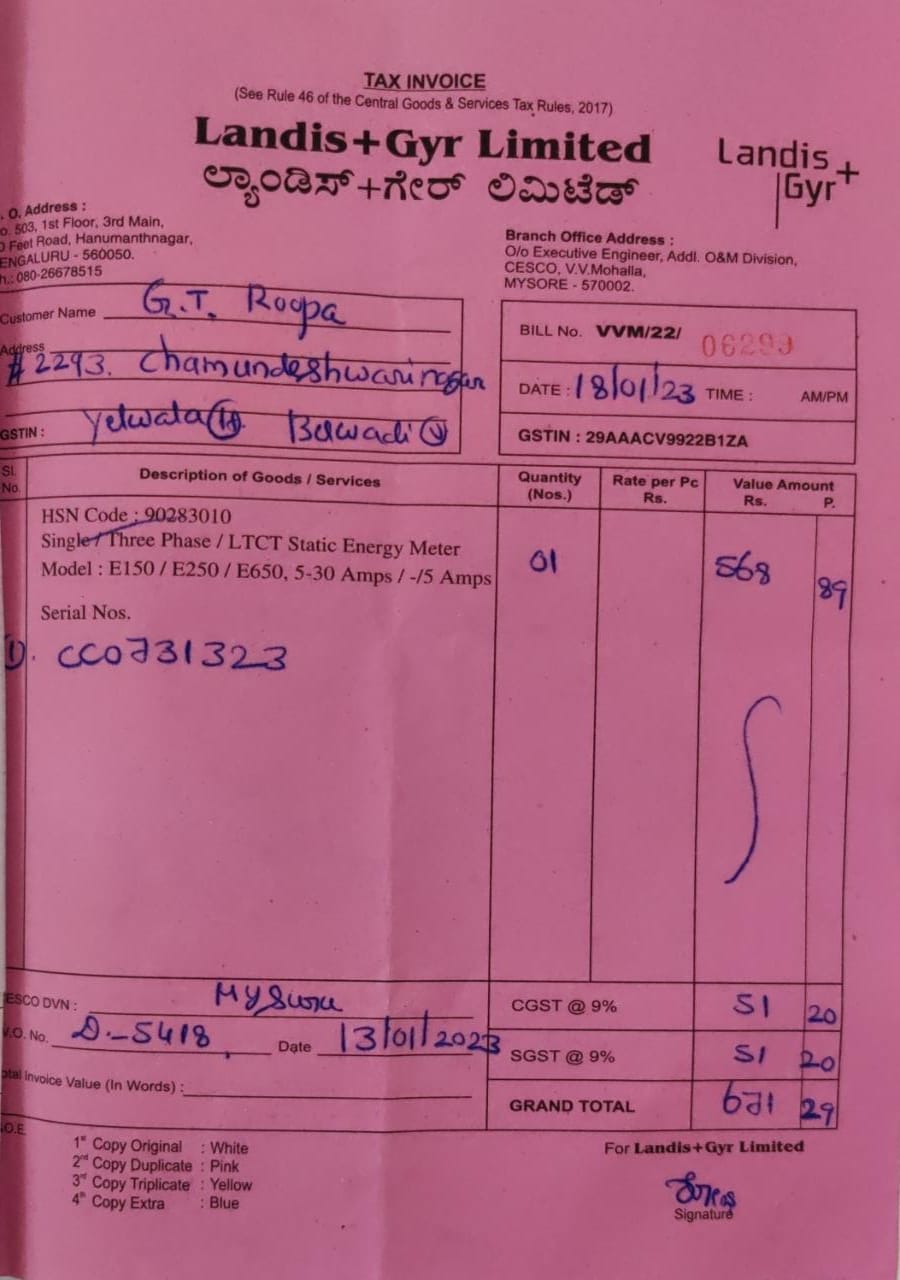 TAX INVOICE
(See Rule 46 of the Central Goods & Services Tax Rules, 2017)
Landis+Gyr Limited
ಲ್ಯಾಂಡಿಸ್+ಗೇರ್ ಲಿಮಿಟೆಡ್
Landis+
Gyr
. O. Address :
o. 503, 1st Floor, 3rd Main,
0 Feet Road, Hanumanthnagar,
ENGALURU - 560050.
h.: 080-26678515
Branch Office Address :
O/o Executive Engineer, Addl. O&M Division,
CESCO, V.V.Mohalla,
MYSORE - 570002.
Customer Name G.T. Roopa
Address #2293. Chamundeshwarinagar
Yelwala (H) Belwadi (V)
GSTIN :
BILL No. VVM/22/ 06299
DATE : 18/01/23 TIME : AM/PM
GSTIN : 29AAACV9922B1ZA
Sl. No. Description of Goods / Services Quantity (Nos.) Rate per Pc Rs. Value Amount Rs. P.
HSN Code : 90283010
Single / Three Phase / LTCT Static Energy Meter
Model : E150 / E250 / E650, 5-30 Amps / -/5 Amps 01 568 89
Serial Nos.
1). CC0731323
ESCO DVN : Mysuru
CGST @ 9% 51 20
.O. No. D.-5418 Date 13/01/2023
SGST @ 9% 51 20
otal Invoice Value (In Words) :
GRAND TOTAL 671 29
.O.E.
1st Copy Original : White
2nd Copy Duplicate : Pink
3rd Copy Triplicate : Yellow
4th Copy Extra : Blue
For Landis+Gyr Limited
Signature